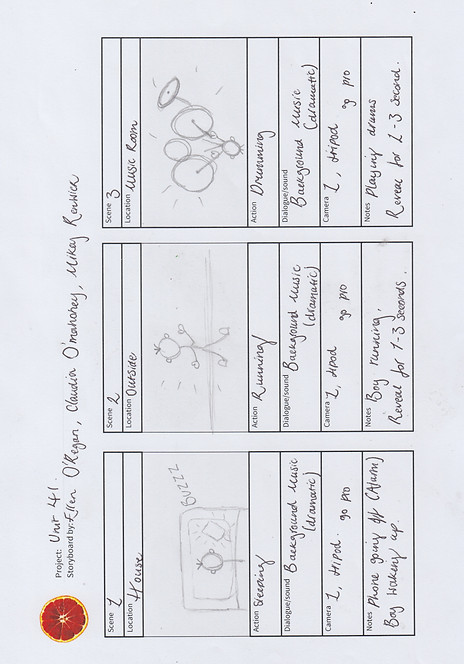 Project: Unit 41.
Storyboard by: Ellen O'Regan, Claudia O'mahoney, Mikey Renwick
Scene 1
Location House
BUZZZ
Action Sleeping
Dialogue/sound Background Music
(dramatic)
Camera 1, tripod. go pro
Notes Phone going off (Alarm)
Boy Waking up.
Scene 2
Location Outside
Action Running
Dialogue/sound Background Music
(dramatic)
Camera 1, tripod go pro
Notes Boy running.
Reveal for 1-3 seconds.
Scene 3
Location Music Room
Action Drumming
Dialogue/sound Background Music
(dramatic)
Camera 1, tripod go pro
Notes Playing drums
Reveal for 2-3 second.